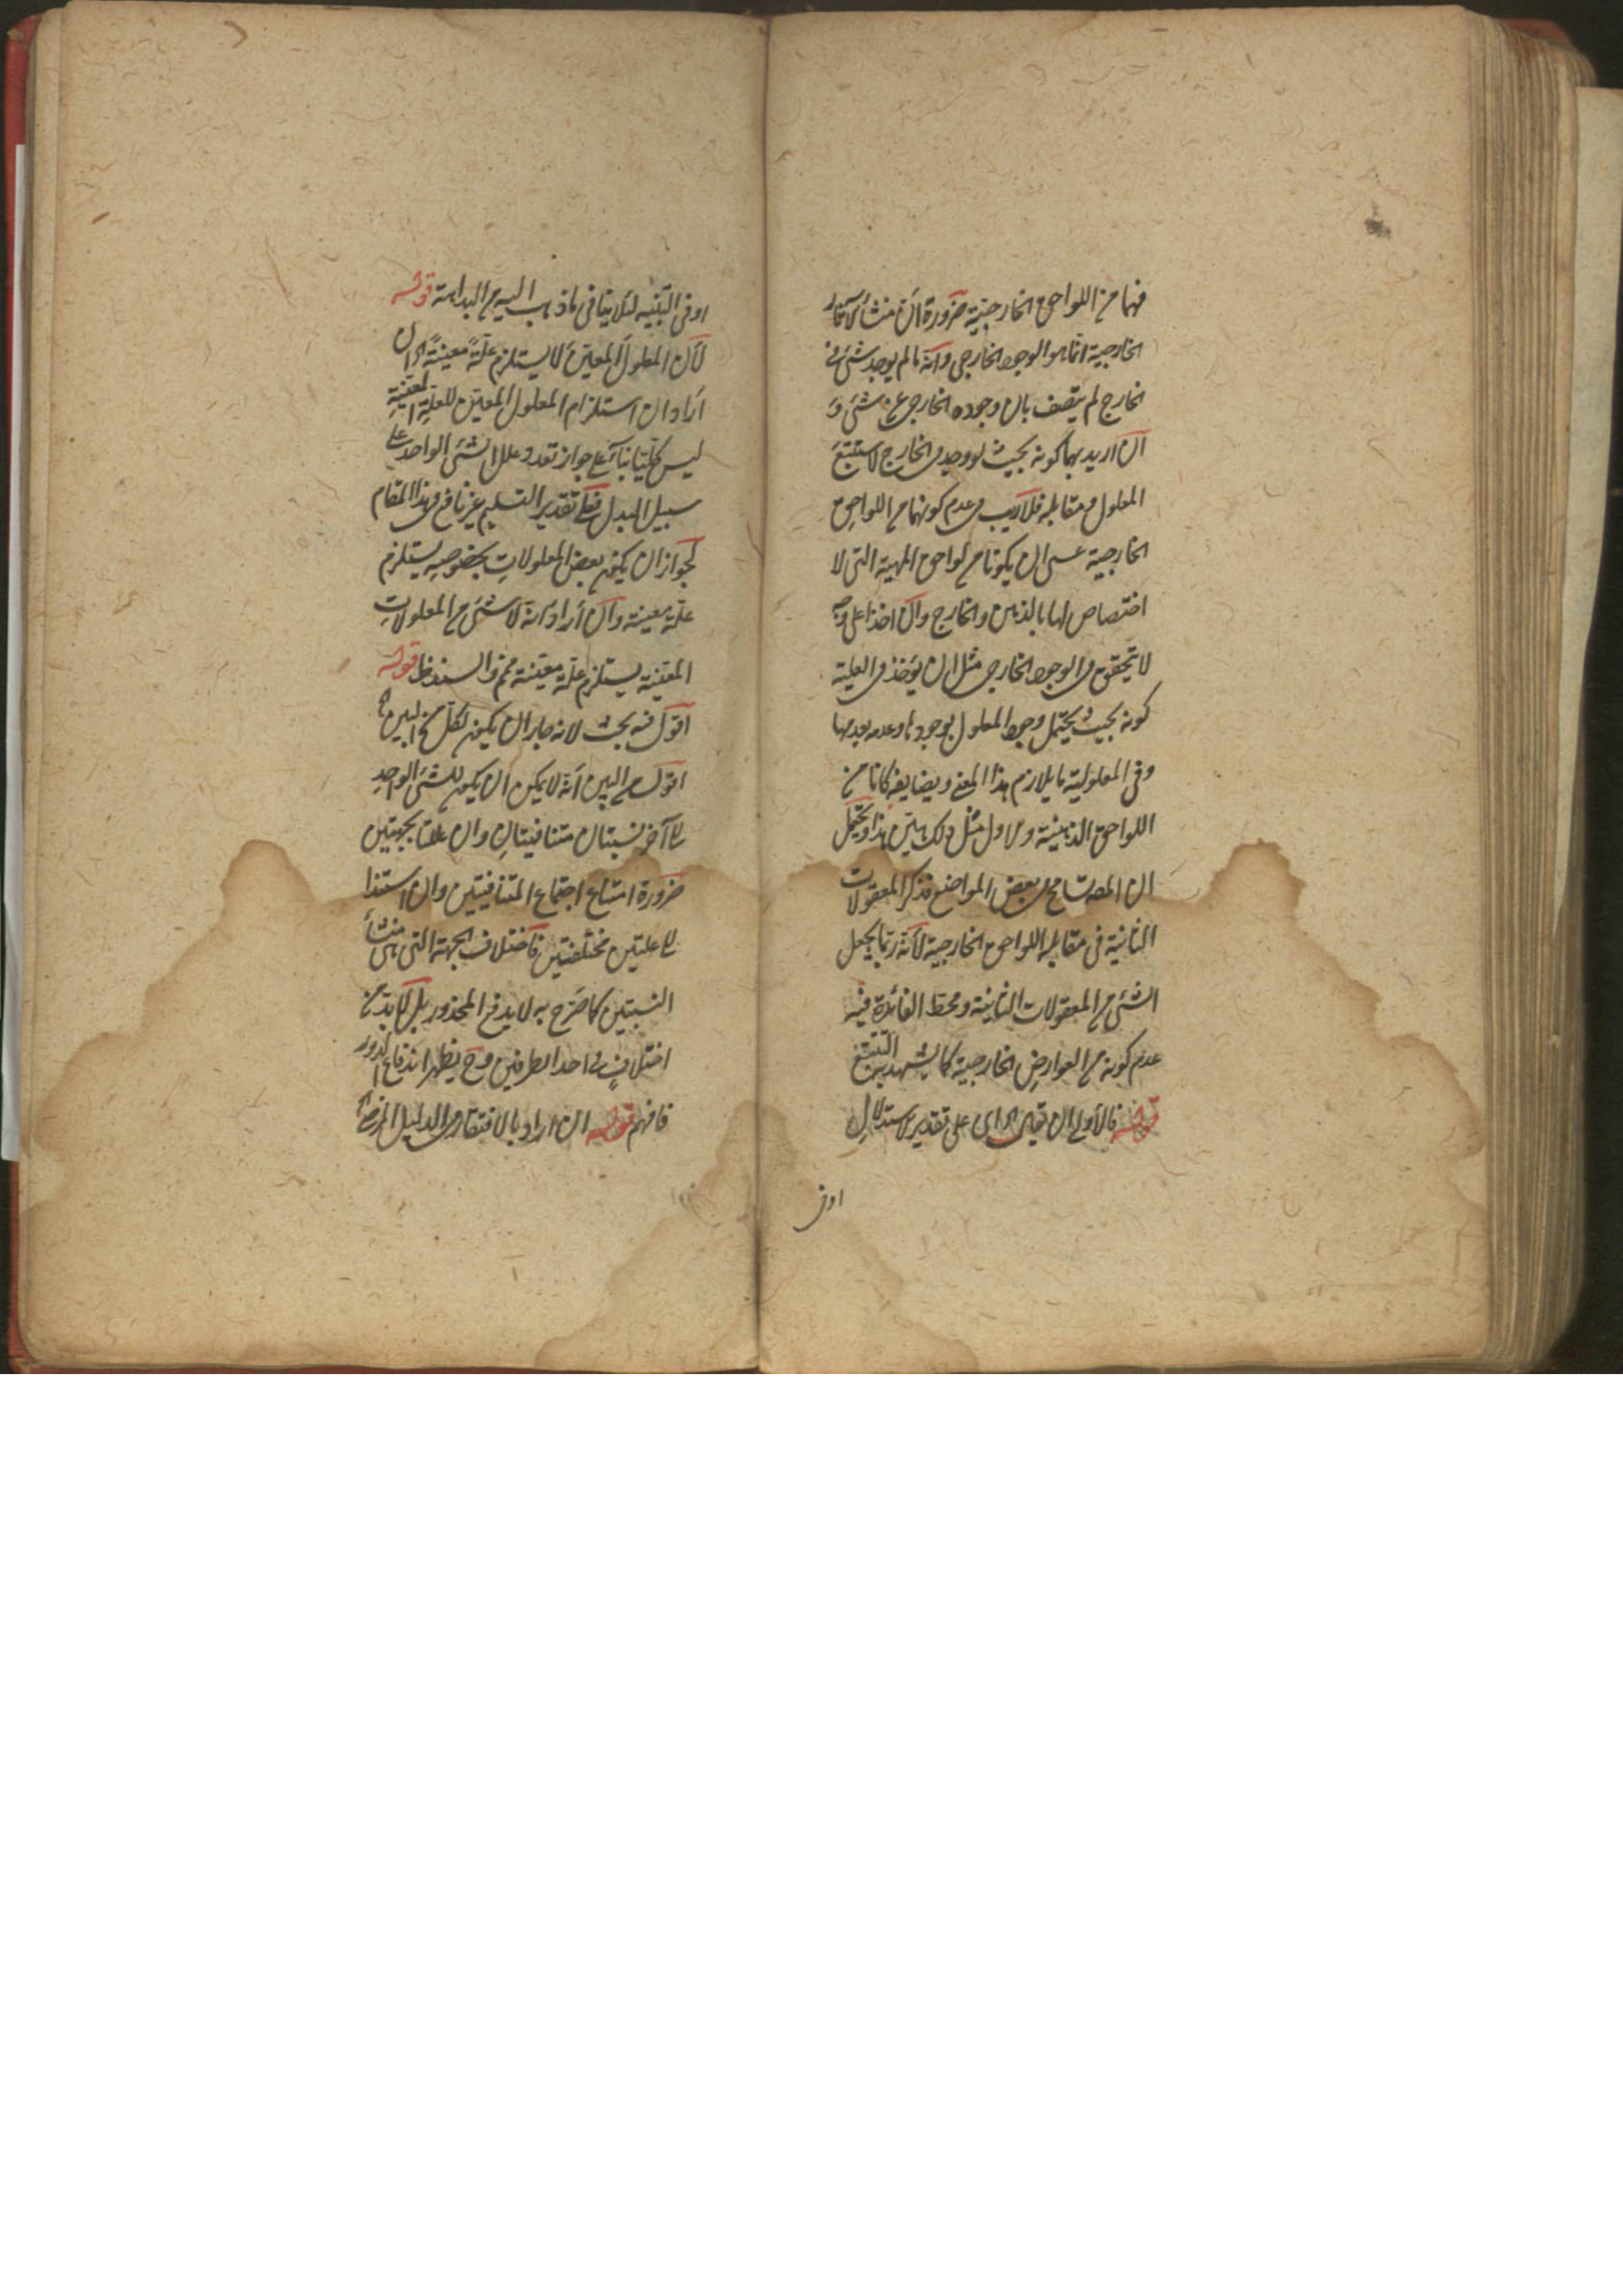 فهما من اللواحق الخارجية ضرورة ان منشأ الآثار
الخارجية انما هو الوجود الخارجي وانه ما لم يوجد شئ في
الخارج لم يتصف بان وجوده الخارجي عن شئ و
ان اريد بهما كونه بحيث لو وجد في الخارج لاستتبع
المعلول ومقابله فلا ريب في عدم كونهما من اللواحق
الخارجية عسى ان يكونا من لواحق المهية التي لا
اختصاص لها بالذهن والخارج وان اخذا على وجه
لا يتحقق في الوجود الخارجي مثل ان يؤخذ في العلية
كونه بحيث يحتمل وجود المعلول بوجودها وعدمه بعدمها
وفي المعلولية ما يلازم هذا المعنى ويضايفه كانا من
اللواحق الذهنية و مثل ذلك هين هذا ويحتمل
ان المصـ تسامح في بعض المواضع فذكر المعقولات
الثانية في مقابلة اللواحق الخارجية لانه ربما يجعل
الشئ من المعقولات الثانية ومحط الفائدة فيه
عدم كونه من العوارض الخارجية كما يشهد به التتبع
قوله فالاولى ان يقال اى على تقدير الاستدلال
اوفى
اوفى التنبيه لئلا ينافي ما ذهب اليه من البداهة قوله
لان المعلول المعين لا يستلزم علة معينة اه ان
اراد ان استلزام المعلول المعين للعلة المعينة
ليس كليا بناء على جواز تعدد علل الشئ الواحد على
سبيل البدل فعلى تقدير التسليم غير نافع في هذا المقام
لجواز ان يكون بعض المعلولات بخصوصه يستلزم
علة معينة وان اراد انه لا شئ من المعلولات
المعينة يستلزم علة معينة فمم والسند ظ قوله
اقول فيه بحث لانه جاز ان يكون لكل من الشيئين اه
اقول من البين انه لا يمكن ان يكون للشئ الواحد
الى آخر نسبتان متنافيتان وان علتا بجهتين
ضرورة امتناع اجتماع المتنافيتين وان استندا
الى علتين مختلفتين فاختلاف الجهة التي هي منشأ
النسبتين كما صرح به لا يدفع المحذور بل لا بد من
اختلاف في احد الطرفين وح يظهر اندفاع الدور
فافهم قوله ان اراد بالافتقار في الدليل المرضي اه